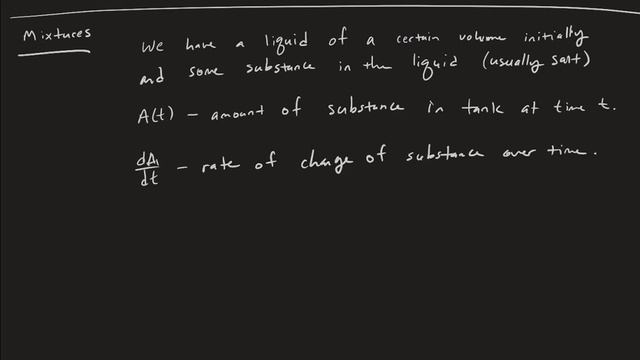 Mixtures
We have a liquid of a certain volume initially
and some substance in the liquid (usually salt)
A(t) – amount of substance in tank at time t.
dA/dt – rate of change of substance over time.